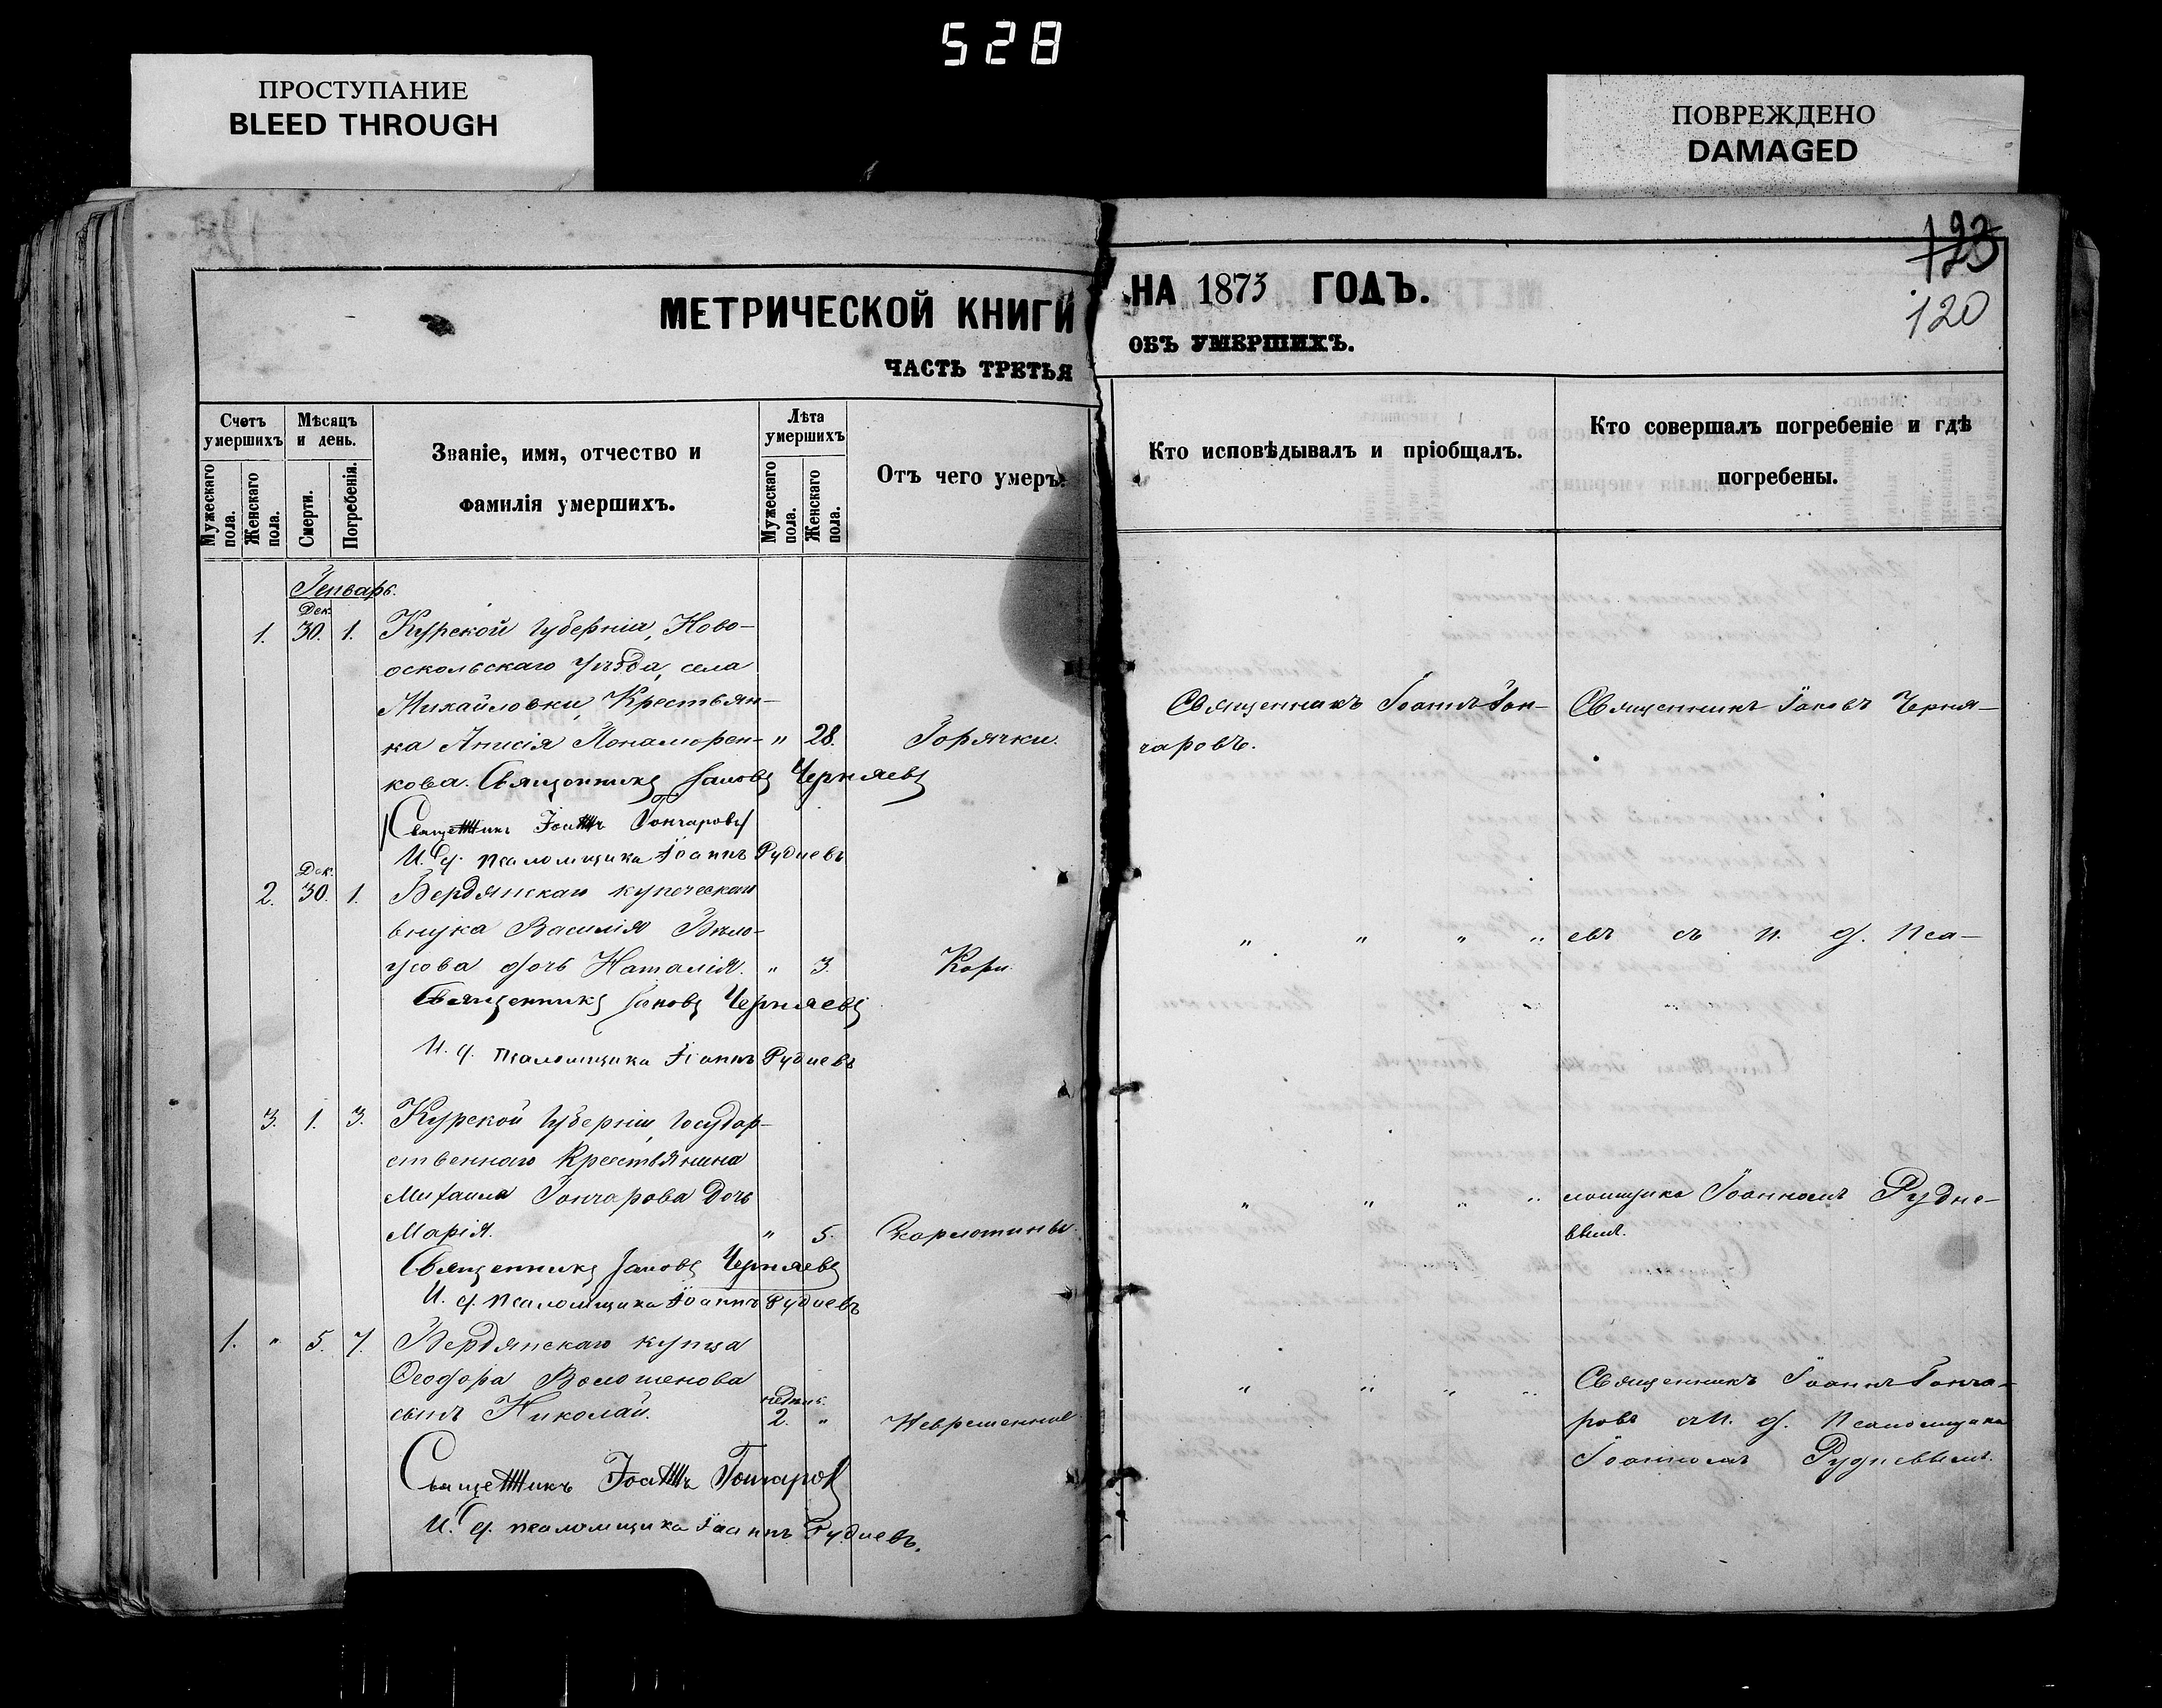 528
ПРОСТУПАНИЕ
BLEED THROUGH
ПОВРЕЖДЕНО
DAMAGED
123
120
МЕТРИЧЕСКОЙ КНИГИ
НА 1873 ГОДЪ.
ЧАСТЬ ТРЕТЬЯ
ОБЪ УМЕРШИХЪ.
Счетъ умершихъ
Мужескаго пола.
Женскаго пола.
Мѣсяцъ и день.
Смерти.
Погребенія.
Званіе, имя, отчество и
фамилія умершихъ.
Лѣта умершихъ
Мужескаго пола.
Женскаго пола.
Отъ чего умеръ.
Кто исповѣдывалъ и пріобщалъ.
Кто совершалъ погребеніе и гдѣ
погребены.
Генварь.
Дек.
1. 30. 1. Курской Губерніи, Ново-
оскольскаго Уѣзда, села
Михайловки, Крестьян-
ка Анисія Понаморен- " 28. Горячки.
кова. Священникъ Іаковъ Черняевъ
Священникъ Іоаннъ Гончаровъ
И. д. псаломщика Іоаннъ Рудневъ
Священникъ Іоаннъ Гон-
чаровъ.
Священникъ Іаковъ Черня-
Дек.
2. 30. 1. Бердянскаго купеческаго
внука Василія Бѣло-
усова дочь Наталія. " 3. Кори.
Священникъ Іаковъ Черняевъ
И. д. псаломщика Іоаннъ Рудневъ
" " " "
евъ съ И. д. Пса-
3. 1. 3. Курской Губерніи, Государ-
ственнаго Крестьянина
Михаила Гончарова Дочь
Марія. " 5. Скарлотины.
Священникъ Іаковъ Черняевъ
И. д. псаломщика Іоаннъ Рудневъ
" " " "
ломщика Іоанномъ Рудне-
вымъ.
1. " 5. 7. Бердянскаго купца
Ѳеодора Волошенова
сынъ Николай. недѣль. 2. "
Священникъ Іоаннъ Гончаровъ
И. д. псаломщика Іоаннъ Рудневъ.
" " " "
Священникъ Іоаннъ Гонча-
ровъ съ И. д. Псаломщика
Іоанномъ Рудневымъ.